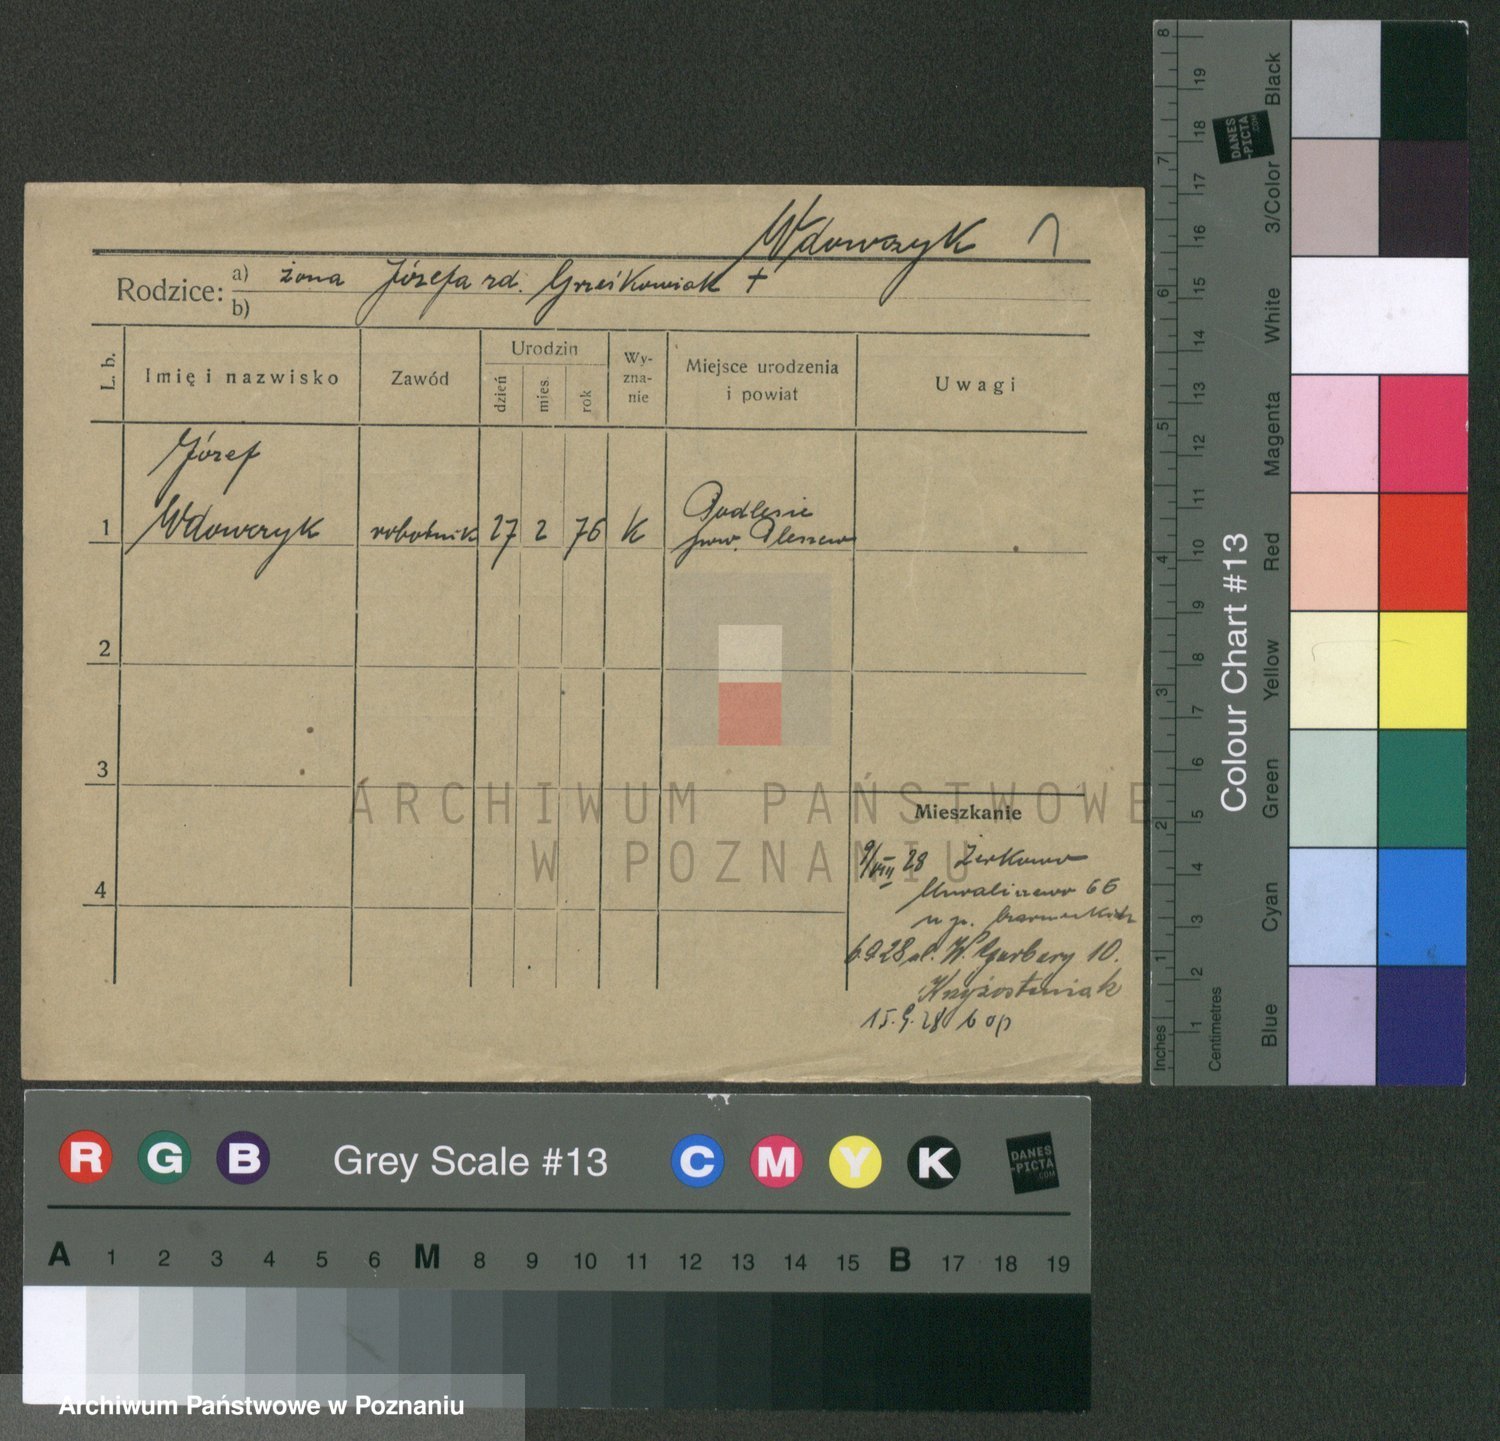 Wdowczyk
Rodzice: a) żona Józefa rd. Grześkowiak +
b)
L. b.
Imię i nazwisko
Zawód
Urodzin
dzień
mies.
rok
Wy-
zna-
nie
Miejsce urodzenia
i powiat
Uwagi
Józef
1 Wdowczyk robotnik 27 2 76 K Podlesie
pow. Pleszew
2
3
4
ARCHIWUM PAŃSTWOWE
W POZNANIU
Mieszkanie
9/VIII 28 Żerkowo
66
u p.
6.9.28 ul. W. Garbary 10.
Krzyżostaniak
15.9.28
Inches
1 2 3 4 5 6 7 8
Centimetres
1 2 3 4 5 6 7 8 9 10 11 12 13 14 15 16 17 18 19
Colour Chart #13
Blue
Cyan
Green
Yellow
Red
Magenta
White
3/Color
Black
DANES
-PICTA
.COM
R G B Grey Scale #13 C M Y K
DANES
-PICTA
.COM
A 1 2 3 4 5 6 M 8 9 10 11 12 13 14 15 B 17 18 19
Archiwum Państwowe w Poznaniu